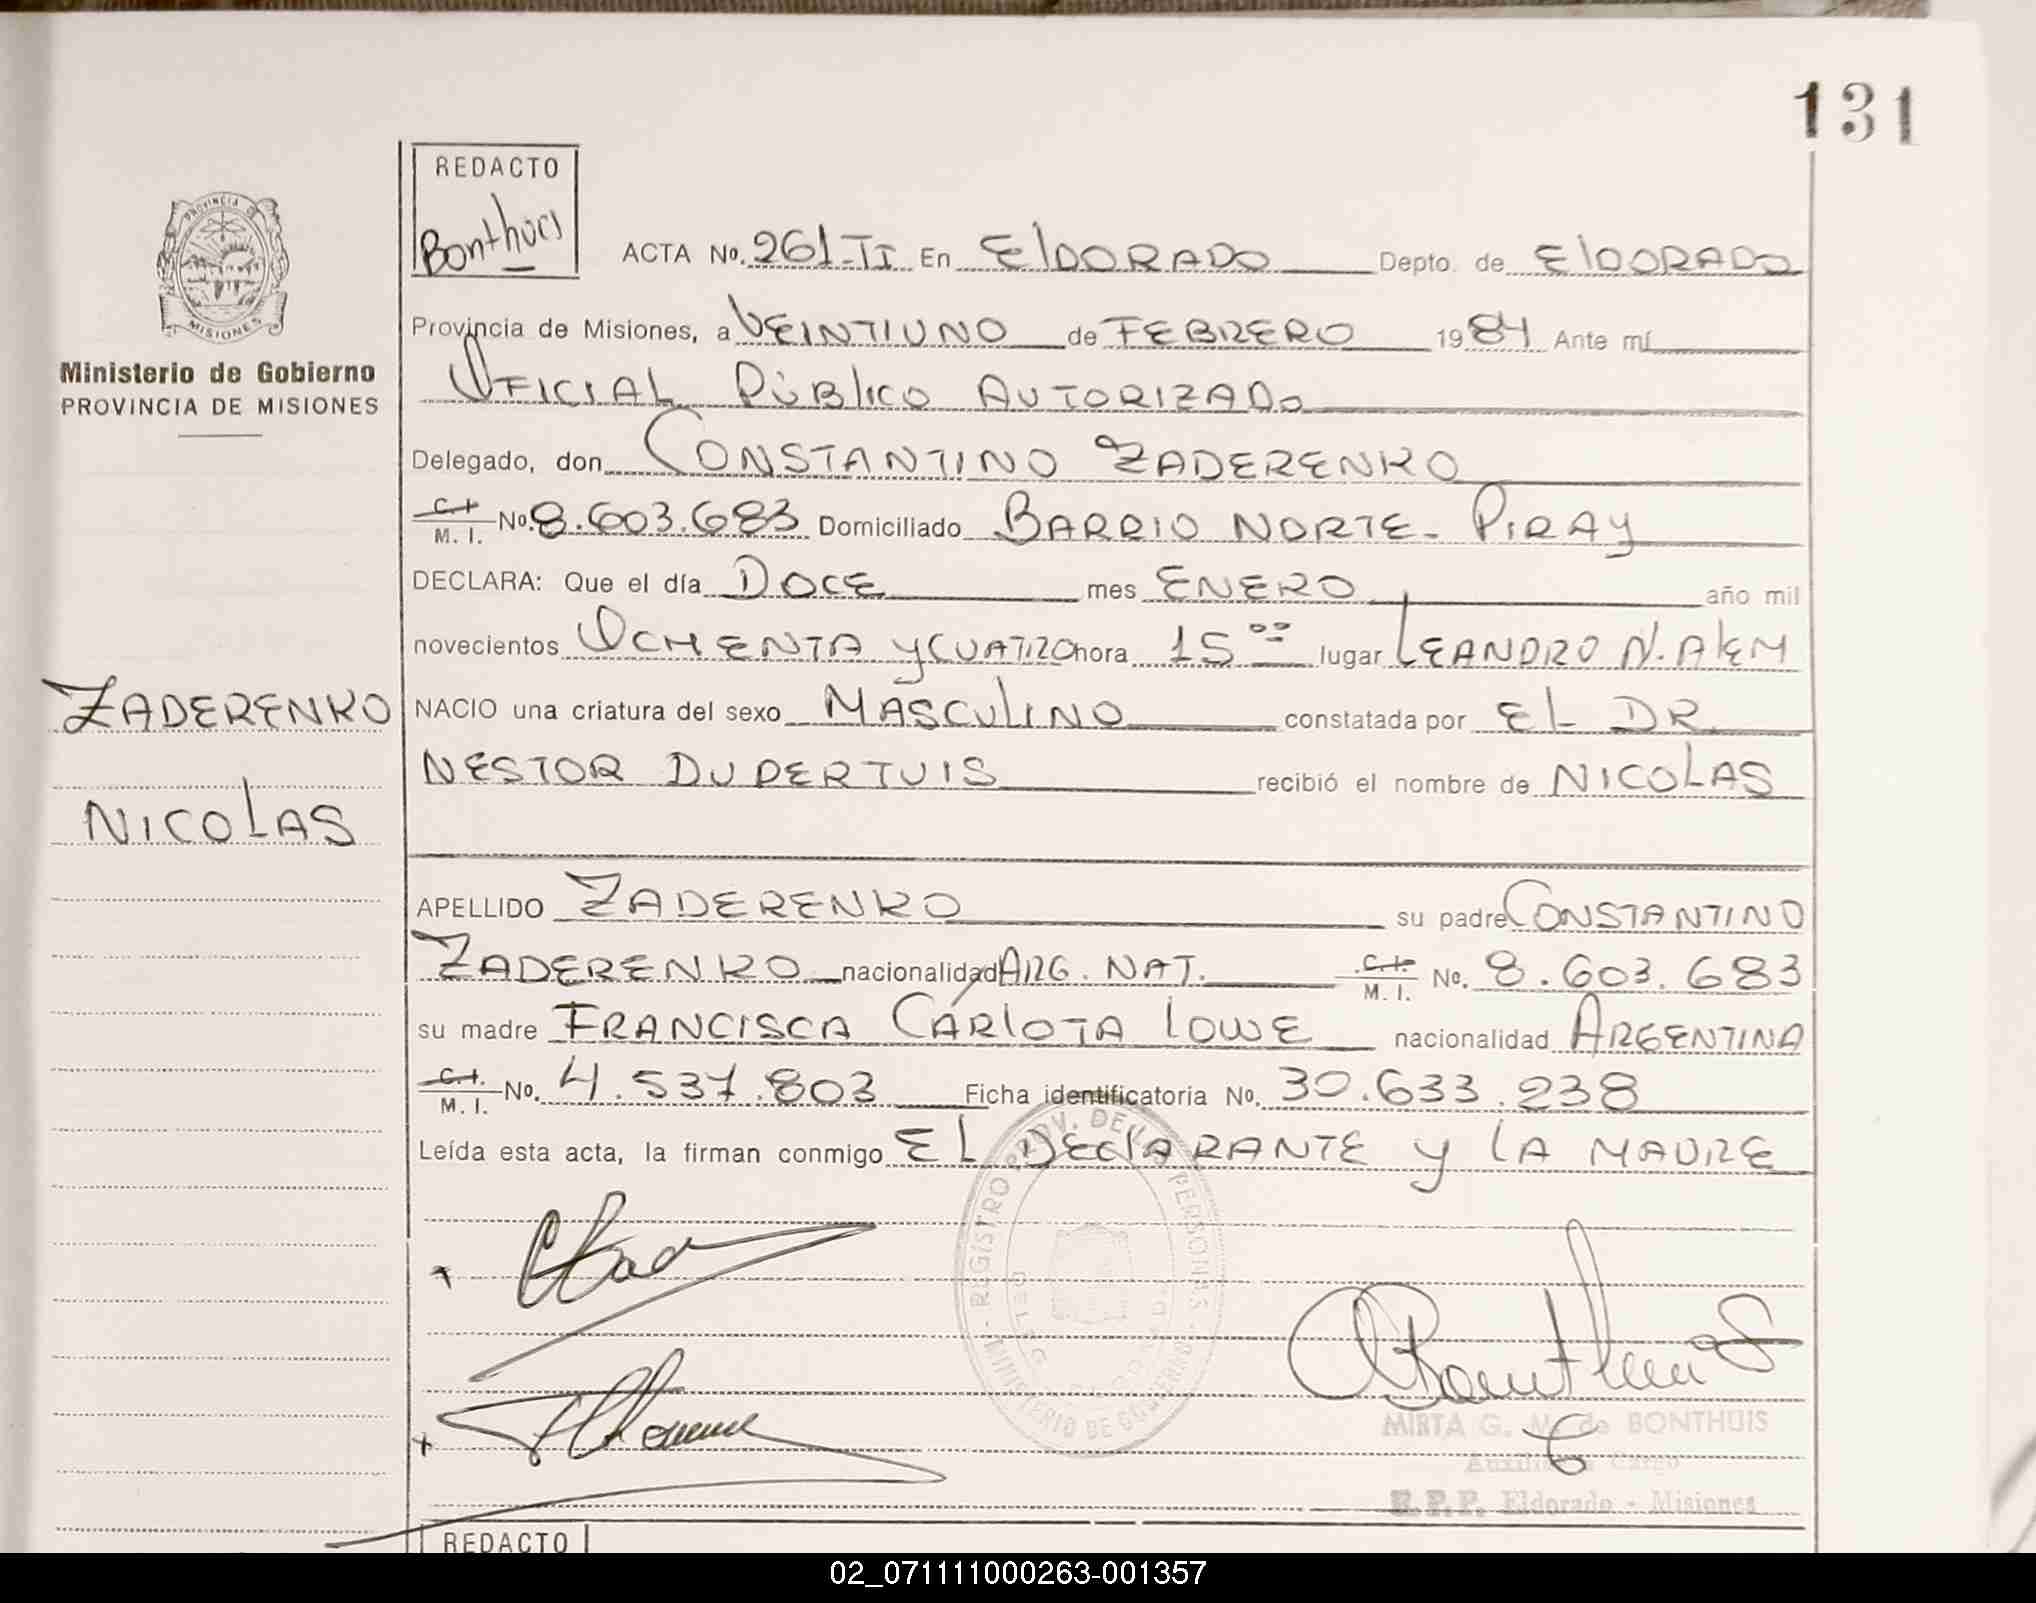 131
REDACTO
Bonthuis
ACTA No. 261-II En ElDORADO Depto. de ElDORADO
PROVINCIA DE MISIONES
Ministerio de Gobierno
PROVINCIA DE MISIONES
Provincia de Misiones, a VEINTIUNO de FEBRERO 1984 Ante mí
OFICIAL PÚBlICO AUTORIZADO
Delegado, don CONSTANTINO ZADERENKO
C.I. M. I. No. 8.603.683 Domiciliado BARRIO NORTE - PIRAY
DECLARA: Que el día DOCE mes ENERO año mil
novecientos OCHENTA y CUATRO hora 15 00 lugar LEANDRO N. AlEM
ZADERENKO
NACIO una criatura del sexo MASCULINO constatada por EL DR.
NESTOR DUPERTUIS recibió el nombre de NICOLAS
NICOLAS
APELLIDO ZADERENKO su padre CONSTANTINO
ZADERENKO nacionalidad ARG. NAT. C.I. M. I. No. 8.603.683
su madre FRANCISCA CARlOTA lOWE nacionalidad ARGENTINA
C.I. M. I. No. 4.537.803 Ficha identificatoria No. 30.633.238
Leída esta acta, la firman conmigo EL DEClARANTE y lA MADRE
REGISTRO PROV. DE LAS PERSONAS - MINISTERIO DE GOBIERNO -
Bonthuis
MIRTA G. M. de BONTHUIS
R.P.P. Eldorado - Misiones
REDACTO
02_071111000263-001357